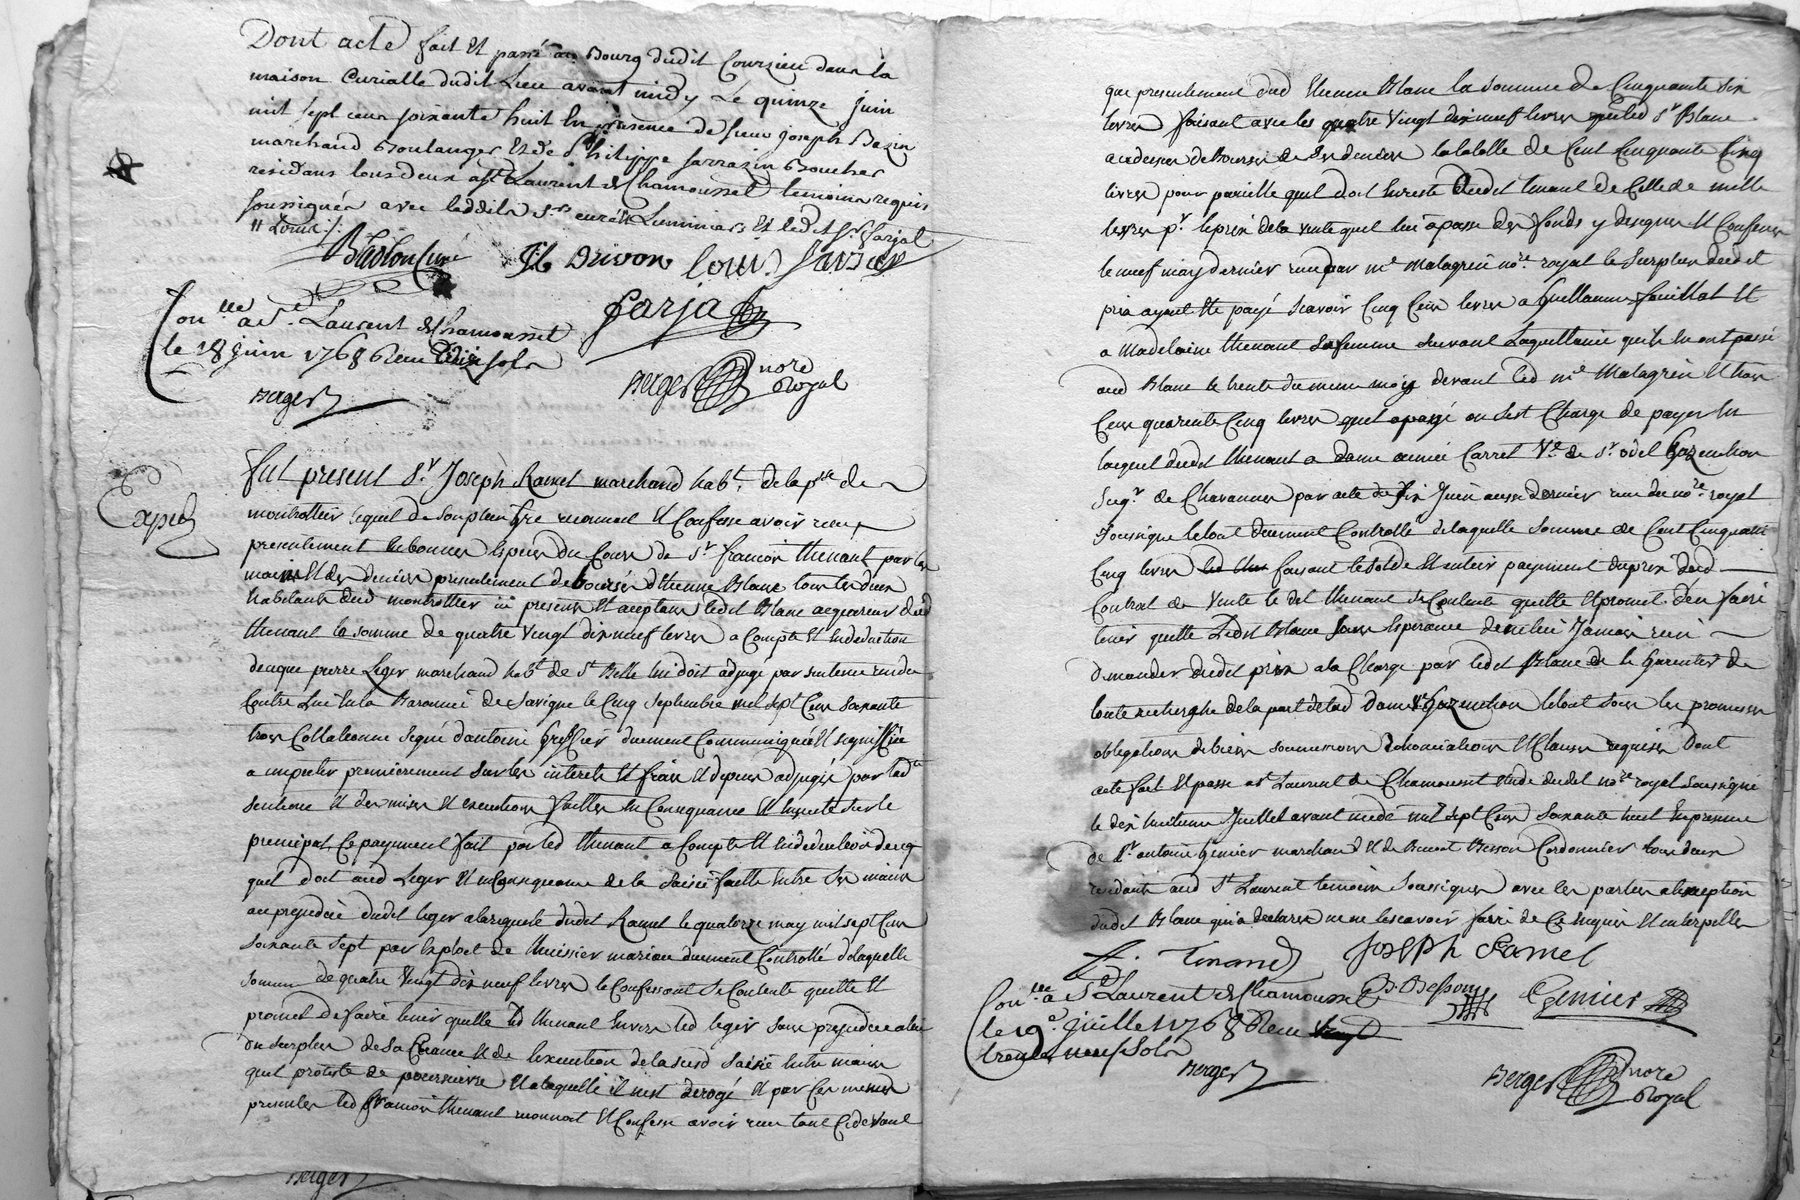 Dont acte fait et passé au Bourg dudit Courzieu dans la
maison Curialle dudit Lieu avant midy Le quinze juin
mil sept cens soixante huit En presence de sieur joseph Bazin
marchand Boulanger et de Sr philippe sarrazin Boucher
residans tous deux a St Laurent de Chamousset temoins requis
soussignés avec lesdits Srs curé et Luminiers et ledit Sr farjat
Basson Curé
J B Drivon
farja
Con.llé a St. Laurent de Chamousset
le 18 juin 1768 Reçu sols
Berger
Berger nore
Royal
Exped
fut present Sr Joseph Ramel marchand habt. de la psse de
montrottier lequel de son plein gré reconnoit et Confesse avoir reçu
presentement en bonnes especes du Cours de Sr francois thenant par les
mains et des deniers presentement deboursés d'Etienne Blanc tous les deux
habitans dud montrottier ici presens et aceptans ledit Blanc acquereur dud
thenant la somme de quatre vingt dix neuf livres a Compte et en deduction
de ce que pierre Leger marchand habt de St Belle lui doit adjugé par sentence rendue
Contre Lui en la Baronnie de Savigne le Cinq septembre mil sept Cens soixante
trois Collationnée signé d'antoine greffier duement Communiquée et signiffiée
a imputer premierement sur les interets et frais et depens adjugés par lad
sentence et de mises et executions faittes en Consequance et ensuite sur le
principal, Ce payement fait par led thenant a Compte et en deduction de ce
quil doit aud Leger et en Consequance de la saisie faitte entre ses mains
au prejudice dudit leger a la requete dudit Ramel le quatorze may mil sept Cens
soixante sept par Exploit de l'huissier marion duement Controllé de laquelle
somme de quatre vingt dix neuf livres le Confessant se Contente quitte et
promet de faire tenir quitte led thenant Envers led leger sans prejudice a lui
du surplus de sa Creance et de l'execution de la susd saisie entre mains
quil proteste de poursuivre et a laquelle il n'est derogé et par Ces mesmes
presentes led francois thenant reconnoit et Confesse avoir reçu tout Cidevant
que presentement dud Etienne Blanc la somme de Cinquante six
livres faisant avec les quatre vingt dix neuf livres que led Sr Blanc
a cidessus deboursés de ses deniers la totalle de Cent Cinquante Cinq
livres pour pareille quil doit En reste audit thenant de Celle de mille
livres pr. le prix de la vente quil lui a passé des fonds y designés et Confinés
le neuf may dernier reçue par me Malagrin nore. royal le surplus dudit
prix ayant Eté payé scavoir Cinq Cens livres a guillaume fouillat et
a Madelaine thenant sa femme suivant la quittance quils en ont passé
aud Blanc le trente du meme mois devant led me Malagrin et trois
Cens quarente Cinq livres quil a passé ou s'est Chargé de payer En
lacquit dudit thenant a dame aimée Carret Ve de Sr odet gozenchon
seigr de Chavannes par acte du six juin aussi dernier reçu du nore. royal
soussigné le tout duement Controllé de laquelle somme de Cent Cinquante
Cinq livres faisant le solde et entier payement du prix dud
Contrat de vente le dit thenant se Contente quitte et promet d'en faire
tenir quitte Ledit Blanc sans Esperance de ne lui jamais rien
demander dudit prix a la Charge par ledit Blanc de le garentir de
toute recherche de la part de lad dame Ve gozenchon le tout sous les promesses
obligations de biens soumissions renonciations et Clauses requises Dont
acte fait et passe a St Laurent de Chamousset Etude dudit nore royal soussigné
le dix huitieme juillet avant midi mil sept Cens soixante huit En presence
de Sr antoine genier marchand et de Benoit Besson Cordonnier tous deux
residants aud St Laurent temoins soussignes avec les parties a l'exeption
dudit Blanc qui a declaré ne le scavoir faire de Ce enquis et interpellé
f. Tenand
Joseph Ramel
B. Besson
Genier
Con.llé a St Laurent de Chamousset
le 19e juillet 1768 Reçu
trente neuf sols
Berger
Berger nore
Royal
Berger